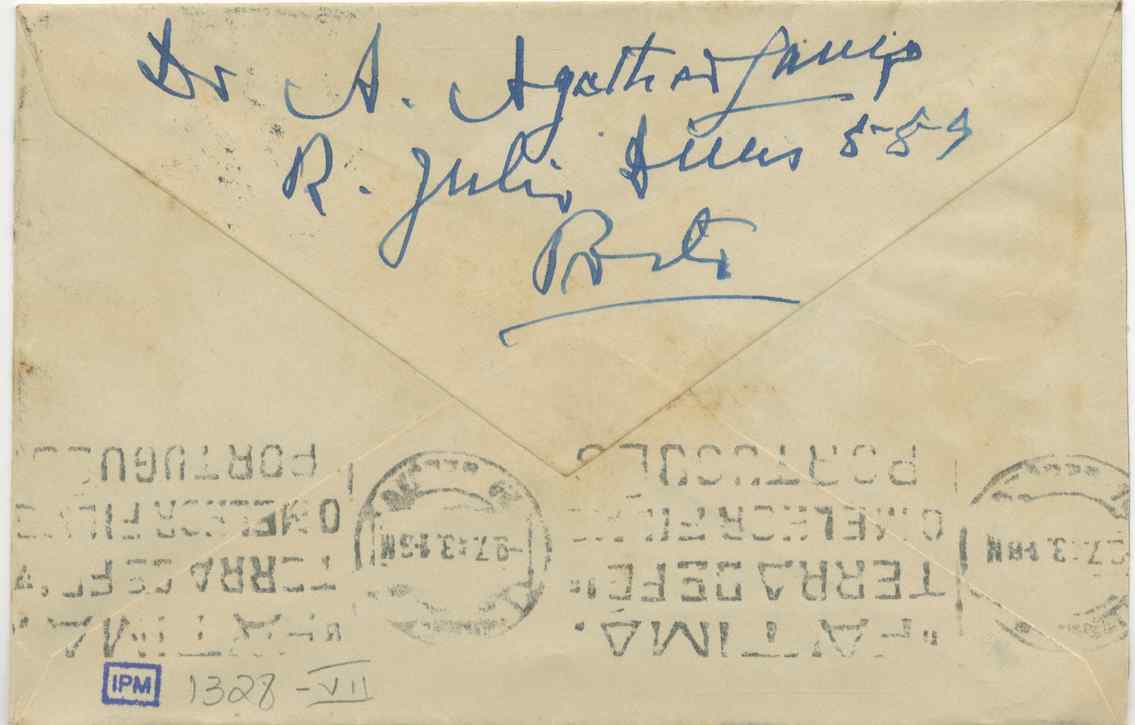 Dr A. Agathão Lança
R. Julio Dinis
Porto
"FATIMA,
TERRA DE FÉ"
O MELHOR FILME
PORTUGUÊS
"FATIMA,
TERRA DE FÉ"
O MELHOR FILME
PORTUGUÊS
IPM 1328-VII